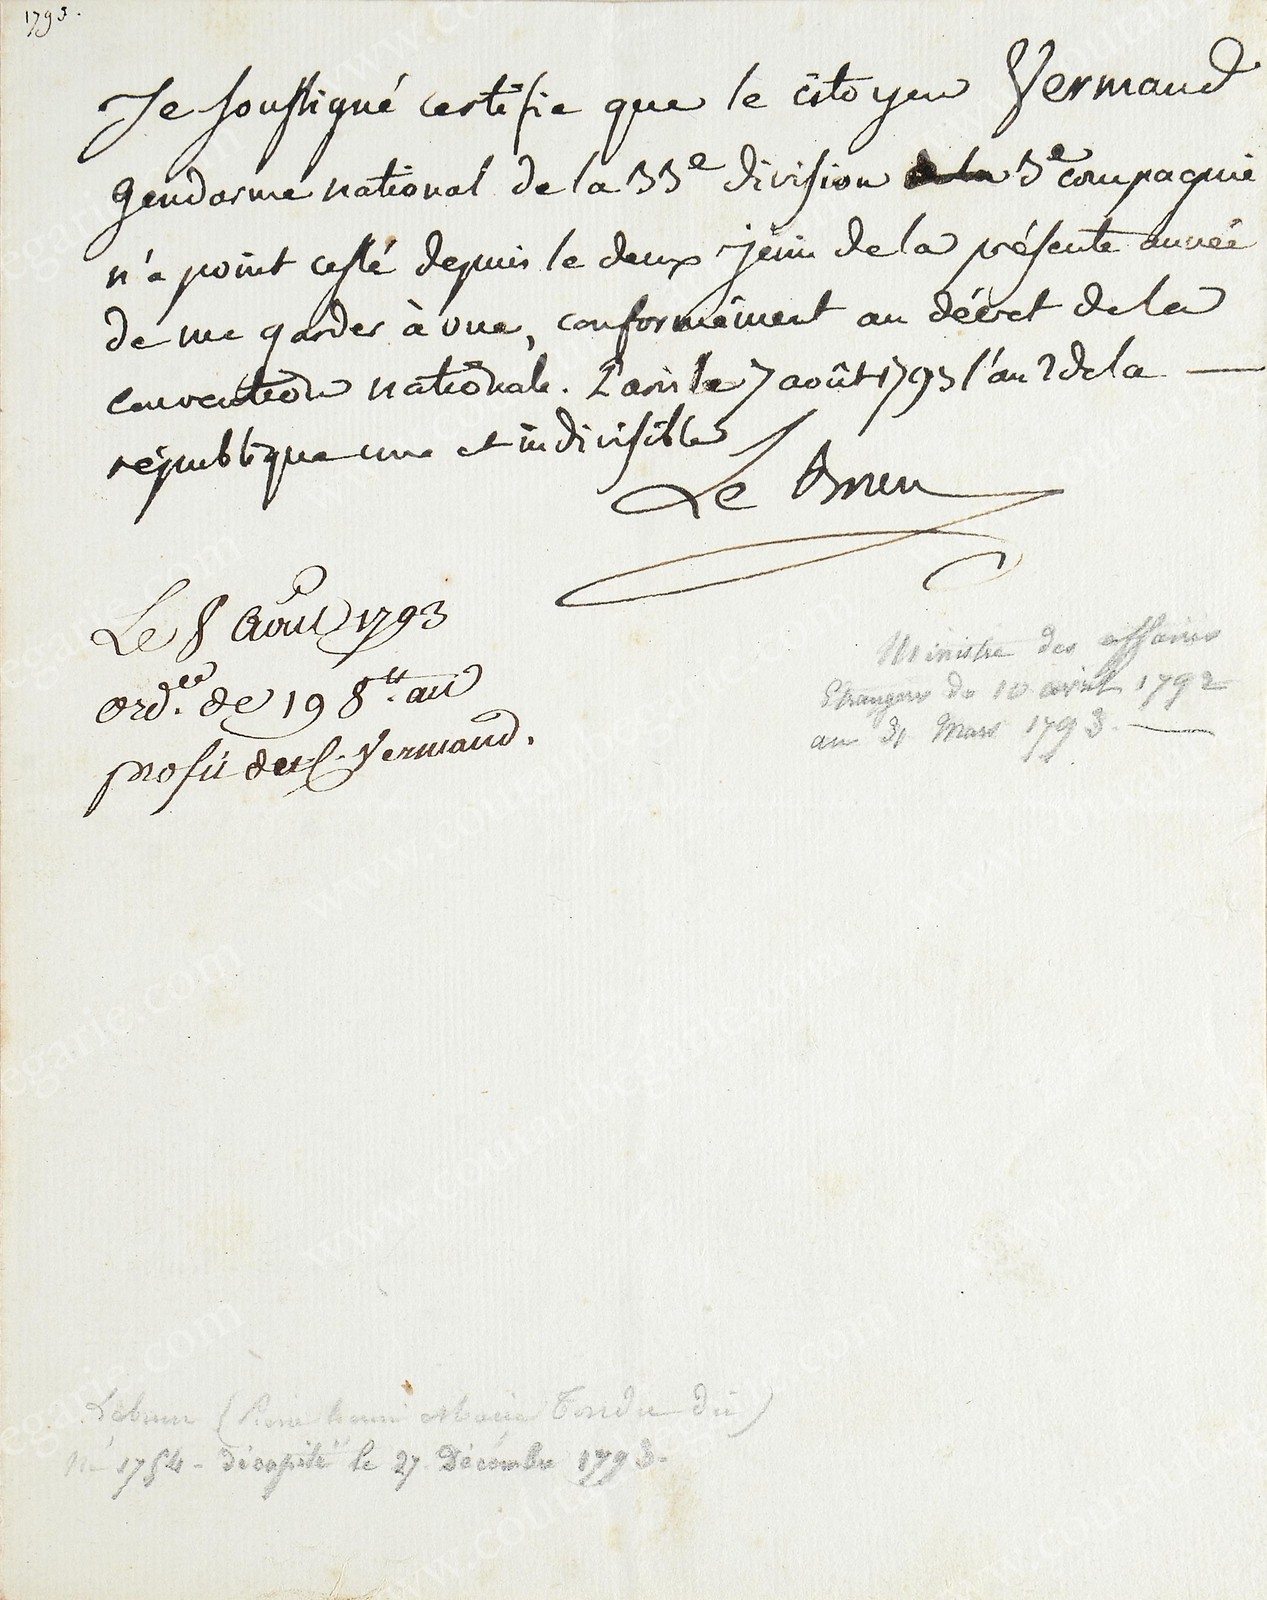 1793.
Je soussigné certifie que le citoyen Vermand
gendarme national de la 33e division de la 3e compagnie
n'a point cessé depuis le deux juin de la présente année
de me garder à vue, conformément au décret de la
convention nationale. Paris le 7 août 1793 l'an 2 de la
république une et indivisible
Le Brun
Le 8 Aout 1793
ordce. de 198tt au
profit du C. Vermand.
Ministre des affaires
Etrangères du 10 avril 1792
au 31 Mars 1793.
Lebrun (Henri Marie Tondu dit)
Né 1754 - décapité le 27 Décembre 1793.
www.coutaubegarie.com